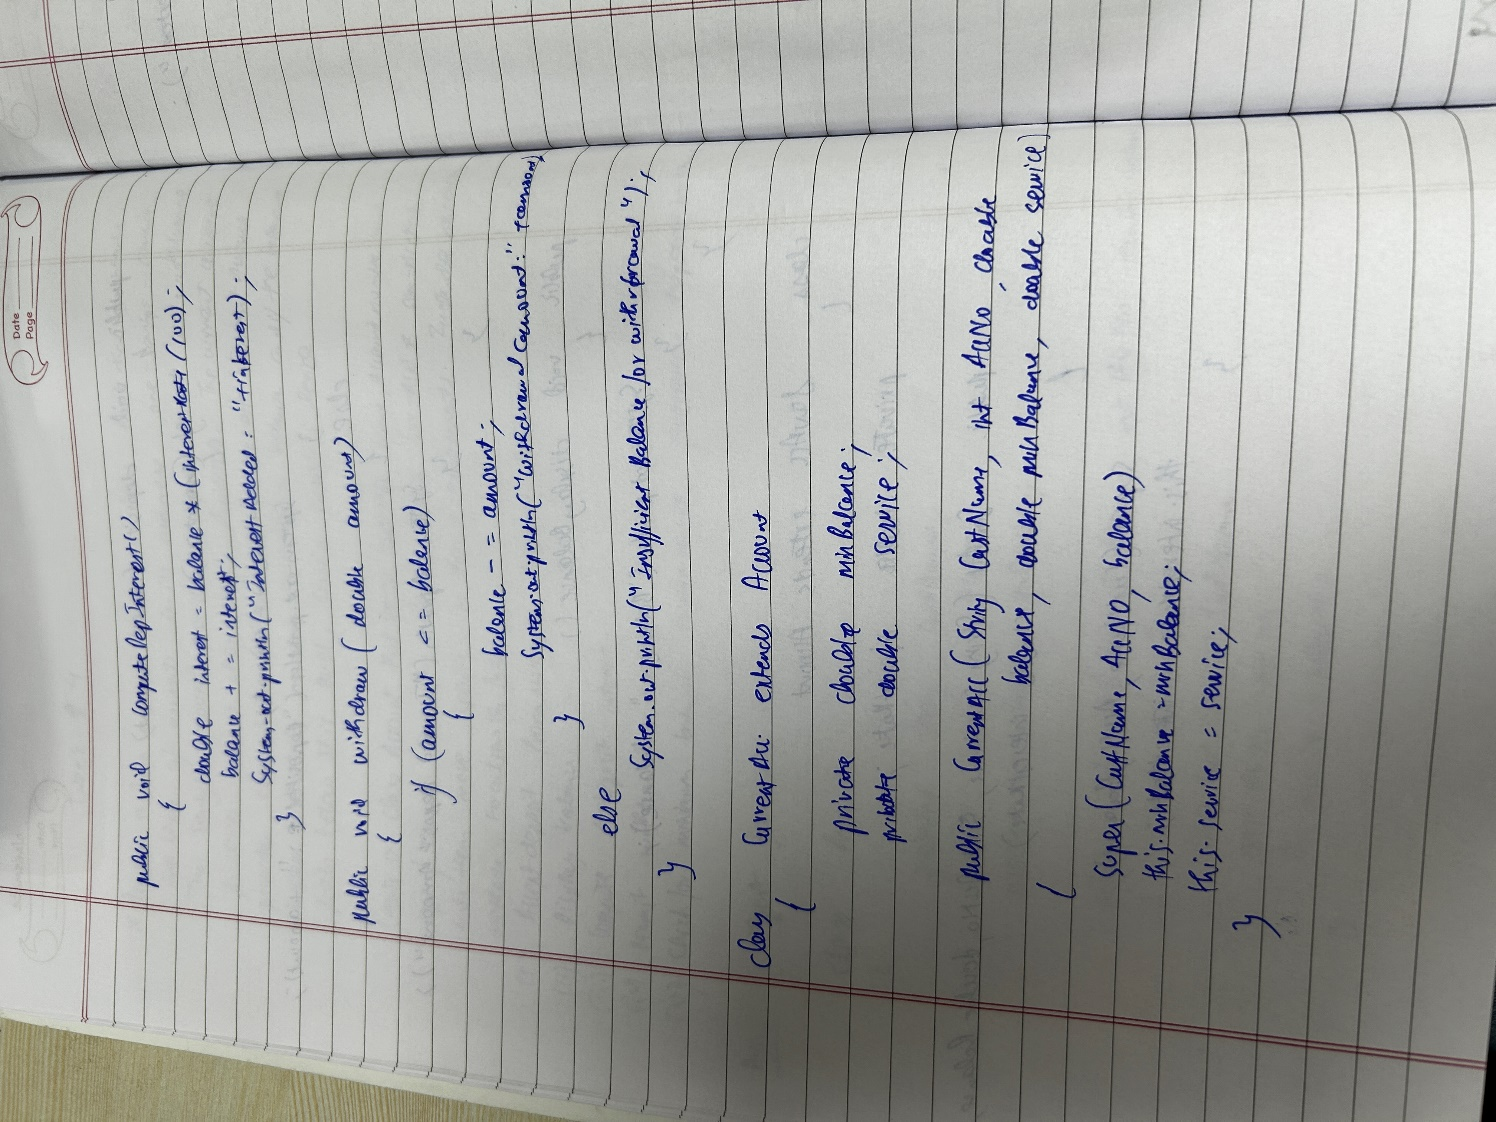 Date
Page
public void computeDepInterest()
{
double interest = balance * (interestRate/100);
balance += interest;
System.out.println("Interest Added: "+interest);
}
public void withdraw (double amount)
{
if (amount <= balance)
{
balance -= amount;
System.out.println("Withdrawal amount:" +amount)
}
else
System.out.println("Insufficient Balance for withdrawal");
}
class CurrentAcc extends Account
{
private double minBalance;
private double service;
public CurrentAcc (String CustName, int AccNo, double
balance, double minBalance, double service)
{
super(CustName, AccNO, balance)
this.minBalance = minBalance;
this.service = service;
}